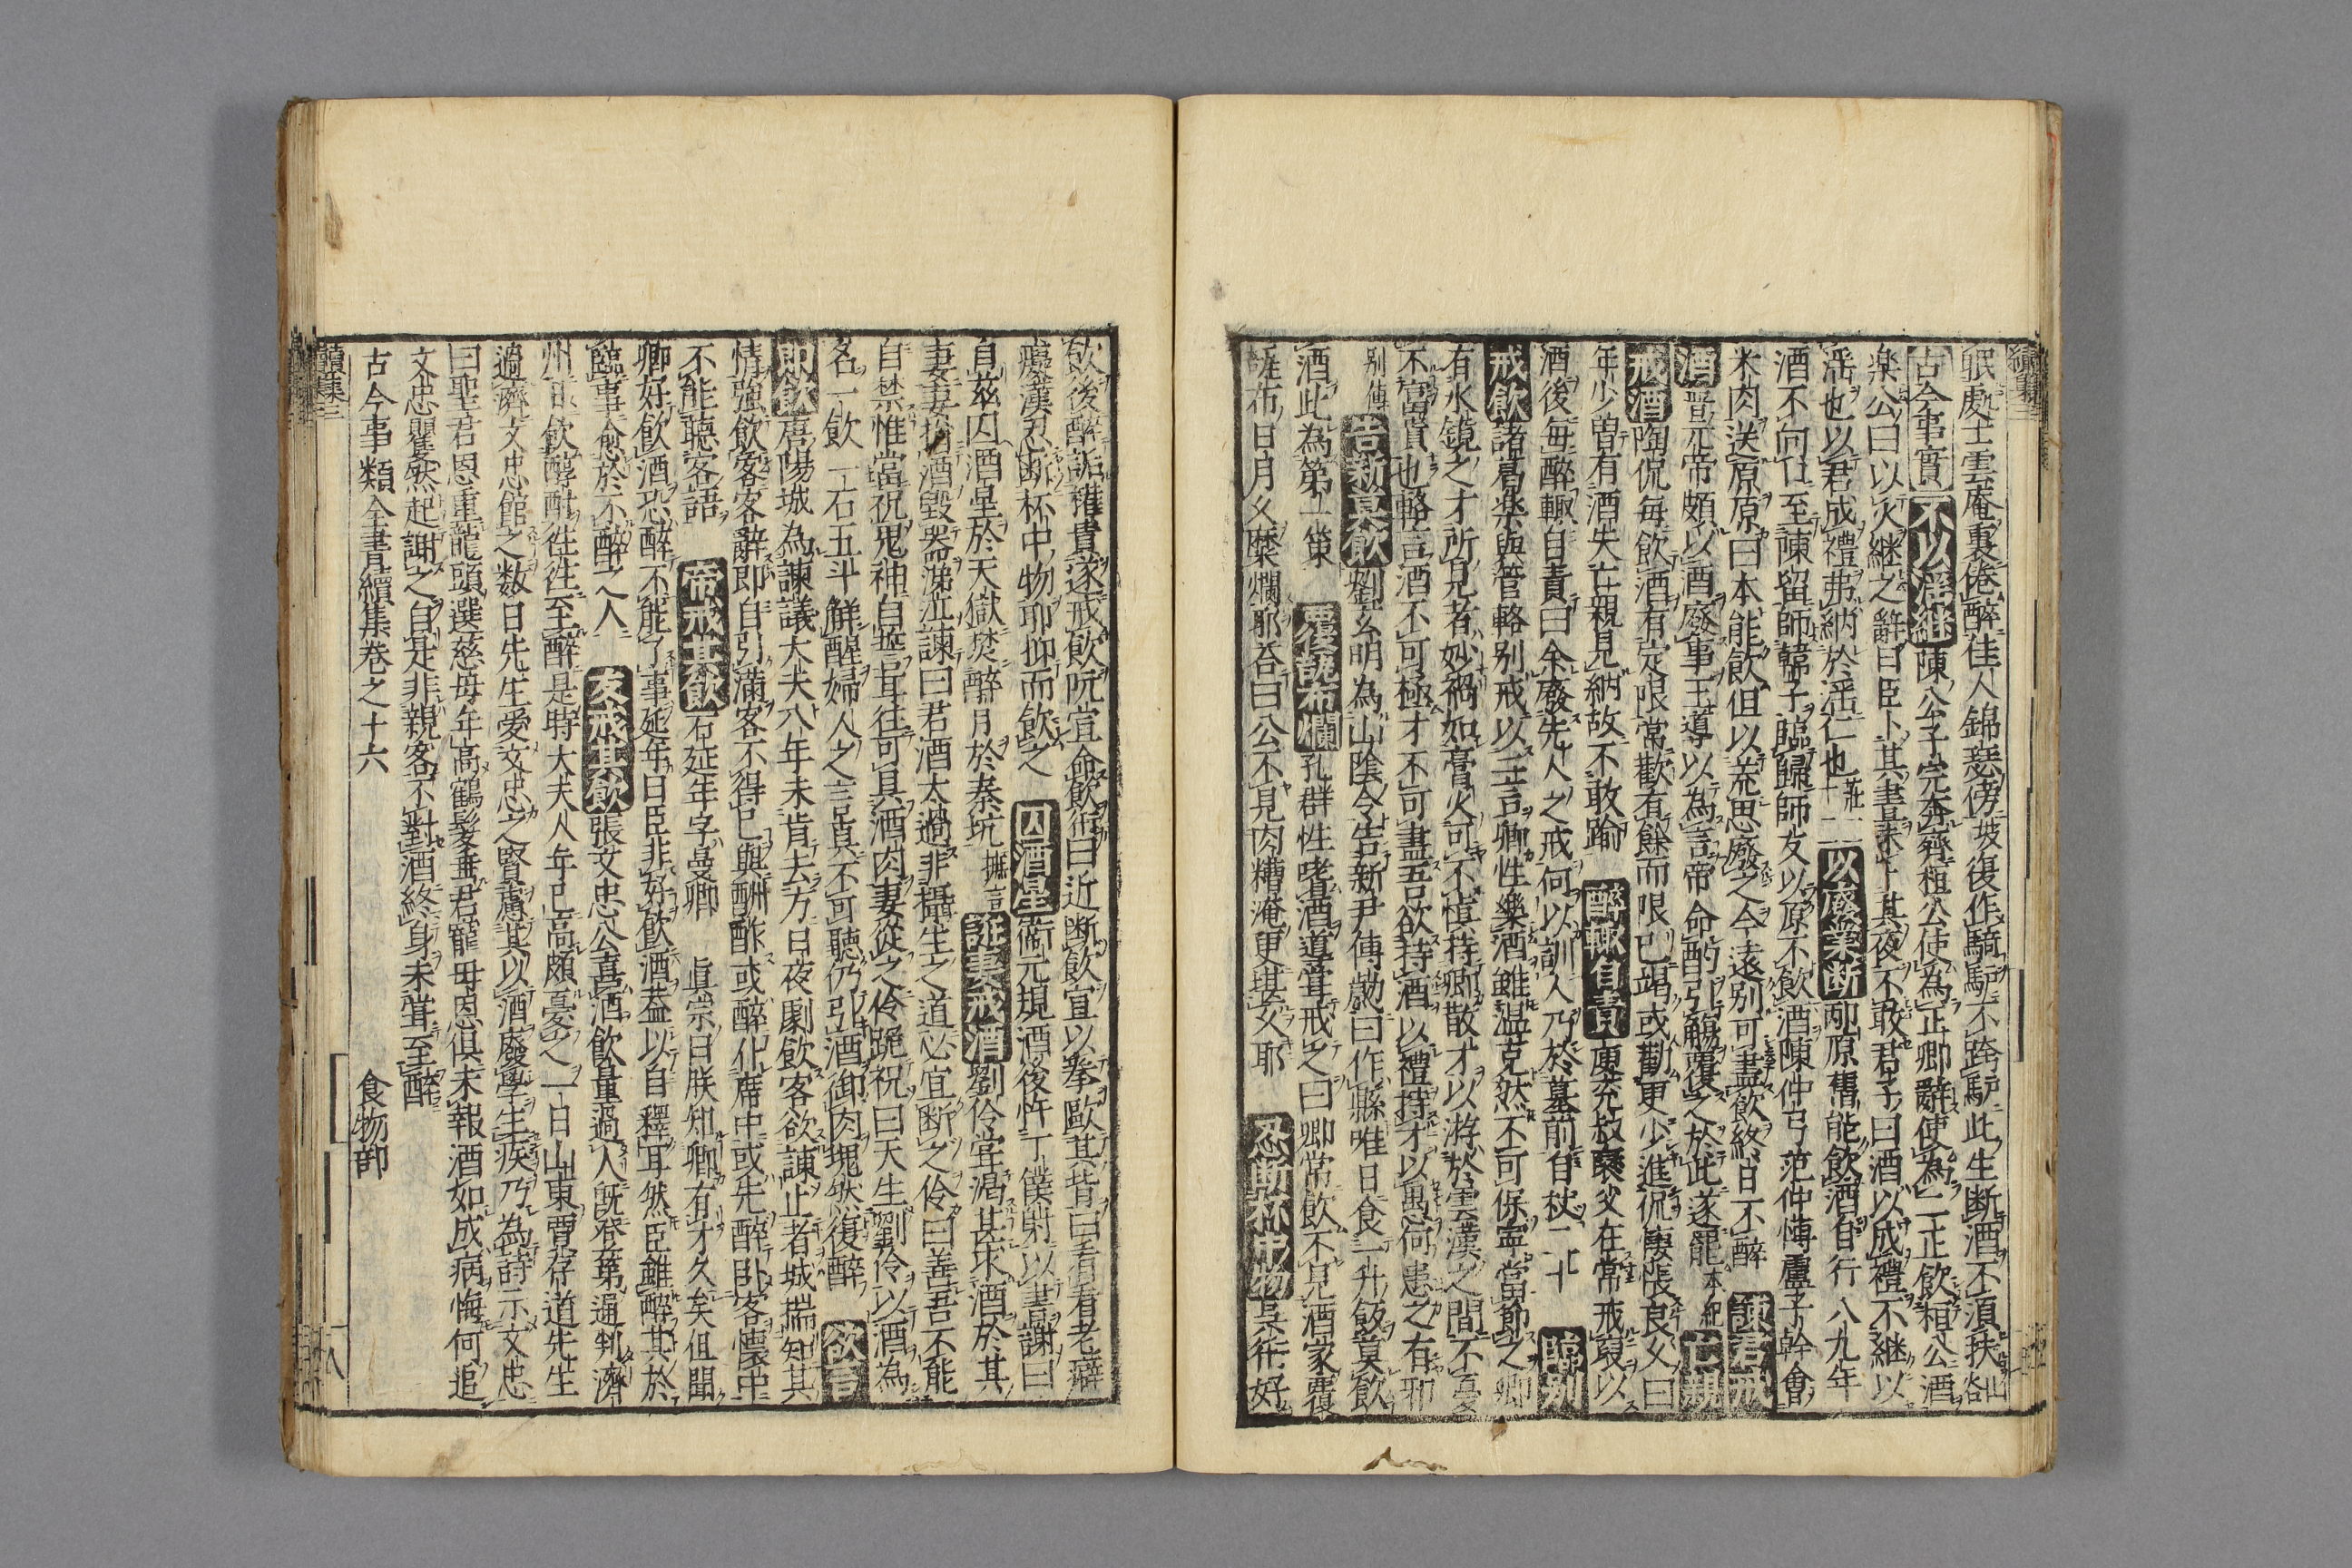 眠處士雲庵裏倦醉佳人錦瑟傍坡復作騎驢不跨驢此生断酒不須扶谷山
古今事實 不以淫繼 陳公子完奔齊桓公使為正卿辭使為工正飲桓公酒
樂公曰以火継之辭曰臣卜其晝未卜其夜不敢君子曰酒以成禮不継以
淫也以君成禮弗納於淫仁也莊二十二 以廢業断 邴原舊能飲酒自行八九年
酒不向口至陳留師韓子臨歸師友以原不飲酒陳仲弓范仲博盧子幹會
米肉送原原曰本能飲但以荒思廢之今遠別可盡飲終日不醉 諫君戒
酒 晋元帝頗以酒廢事王導以為言帝命酌引觴覆之於此遂罷本紀 亡親
戒酒 陶侃毎飲酒有定限常歡有餘而限已竭或勸更少進侃悽悵良久曰
年少曽有酒失亡親見納故不敢踰 醉輙自責 庾兖叔襃父在常戒衮以
酒後毎醉輙自責曰余廢先人之戒何以訓人乃於墓前自杖二十 臨別
戒飲 諸葛樂與管輅别戒以二言卿性樂酒雖温克然不可保寧當節之卿
有水鏡之才所見者妙禍如膏火可不慎持卿散才以游於雲漢之間不憂
不富貴也輅言酒不可極才不可盡吾欲持酒以禮持才以愚何患之有邪
别傳 告新尹飲 劉玄明為山陰令告新尹傅歳曰作縣唯日食一升飯莫飲
酒此為第一策 覆瓿布爛 孔群性嗜酒道嘗戒之曰卿常飲不見酒家覆
瓿布日月久糜爛耶荅曰公不見肉糟淹更堪久耶 忍断杯中物 呉衎好
飲後醉詬權貴遂戒飲阮宣命飲衎曰近断飲宣以拳歐其背曰看看老癖
癡漢忍断杯中物耶抑而飲之 囚酒星 衛元規酒後忤丁僕射以書謝曰
自茲囚酒星於天獄焚醉月於秦坑摭言 誑妻戒酒 劉伶嘗渇甚求酒於其
妻妻捨酒毀器涕泣諫曰君酒太過非攝生之道必宜断之伶曰善吾不能
自禁惟當祝鬼神自誓耳徃可具酒肉妻從之伶跪祝曰天生劉伶以酒為
名一飲一石五斗觧醒婦人之言真不可聽仍引酒御肉塊然復醉 欲言
即飲 唐陽城為諫議大夫八年未肯去方日夜劇飲客欲諫止者城揣知其
情強飲客客辭即自引滿客不得已與酬酢或醉仆席中或先醉卧客懐中
不能聴客語 帝戒其飲 石延年字曼卿 真宗曰朕知卿有才久矣但聞
卿好飲酒恐醉不能了事延年曰臣非好飲酒葢以自釋耳然臣雖醉其於
臨事愈於不醉之人 友戒其飲 張文忠公喜酒飲量過人既登第通判濟
州日飲醇酎徃徃至醉是時大夫人年已高頗憂之一日山東賈存道先生
過濟文忠館之数日先生愛文忠之賢慮其以酒廢學生疾乃為詩示文忠
曰聖君恩重龍頭選慈母年高鶴髪垂君寵母恩倶未報酒如成病悔何追
文忠瞿然起謝之自是非親客不對酒終身未嘗至醉
古今事類全書續集巻之十六 食物部